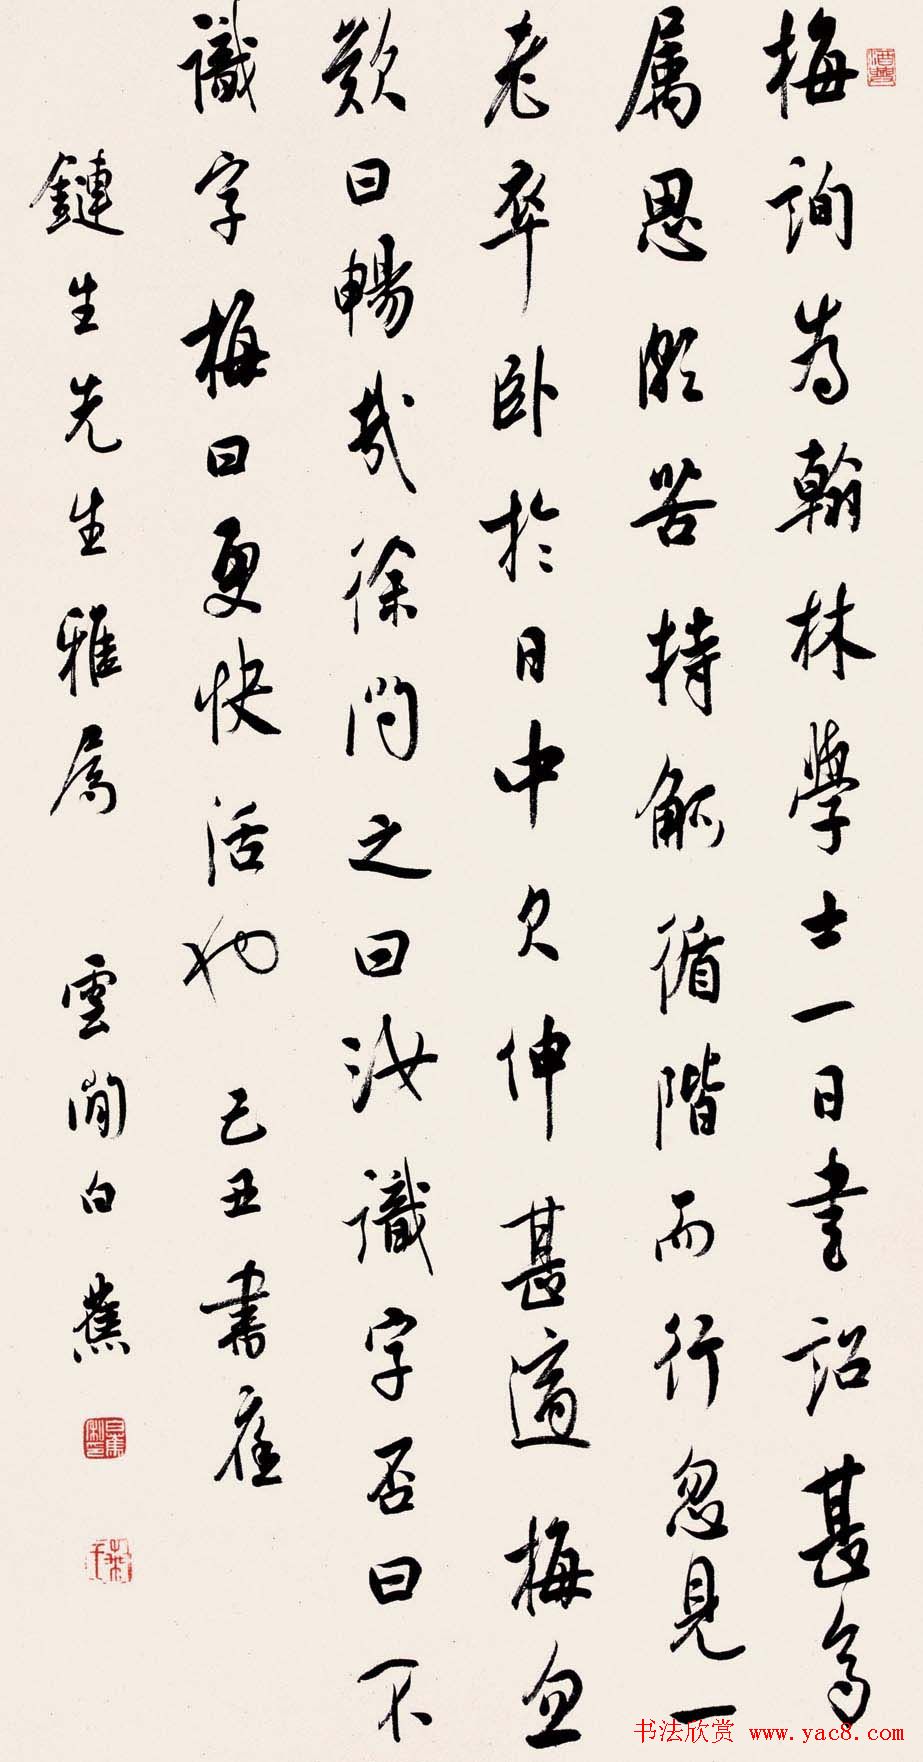 梅詢為翰林學士一日書詔甚多
屬思頗苦持觚循階而行忽見一
老卒卧於日中欠伸甚適梅忽
歎曰暢哉徐問之曰汝識字否曰不
識字梅曰更快活也 己丑書應
鏈生先生雅屬 雲間白蕉
书法欣赏 www.yac8.com